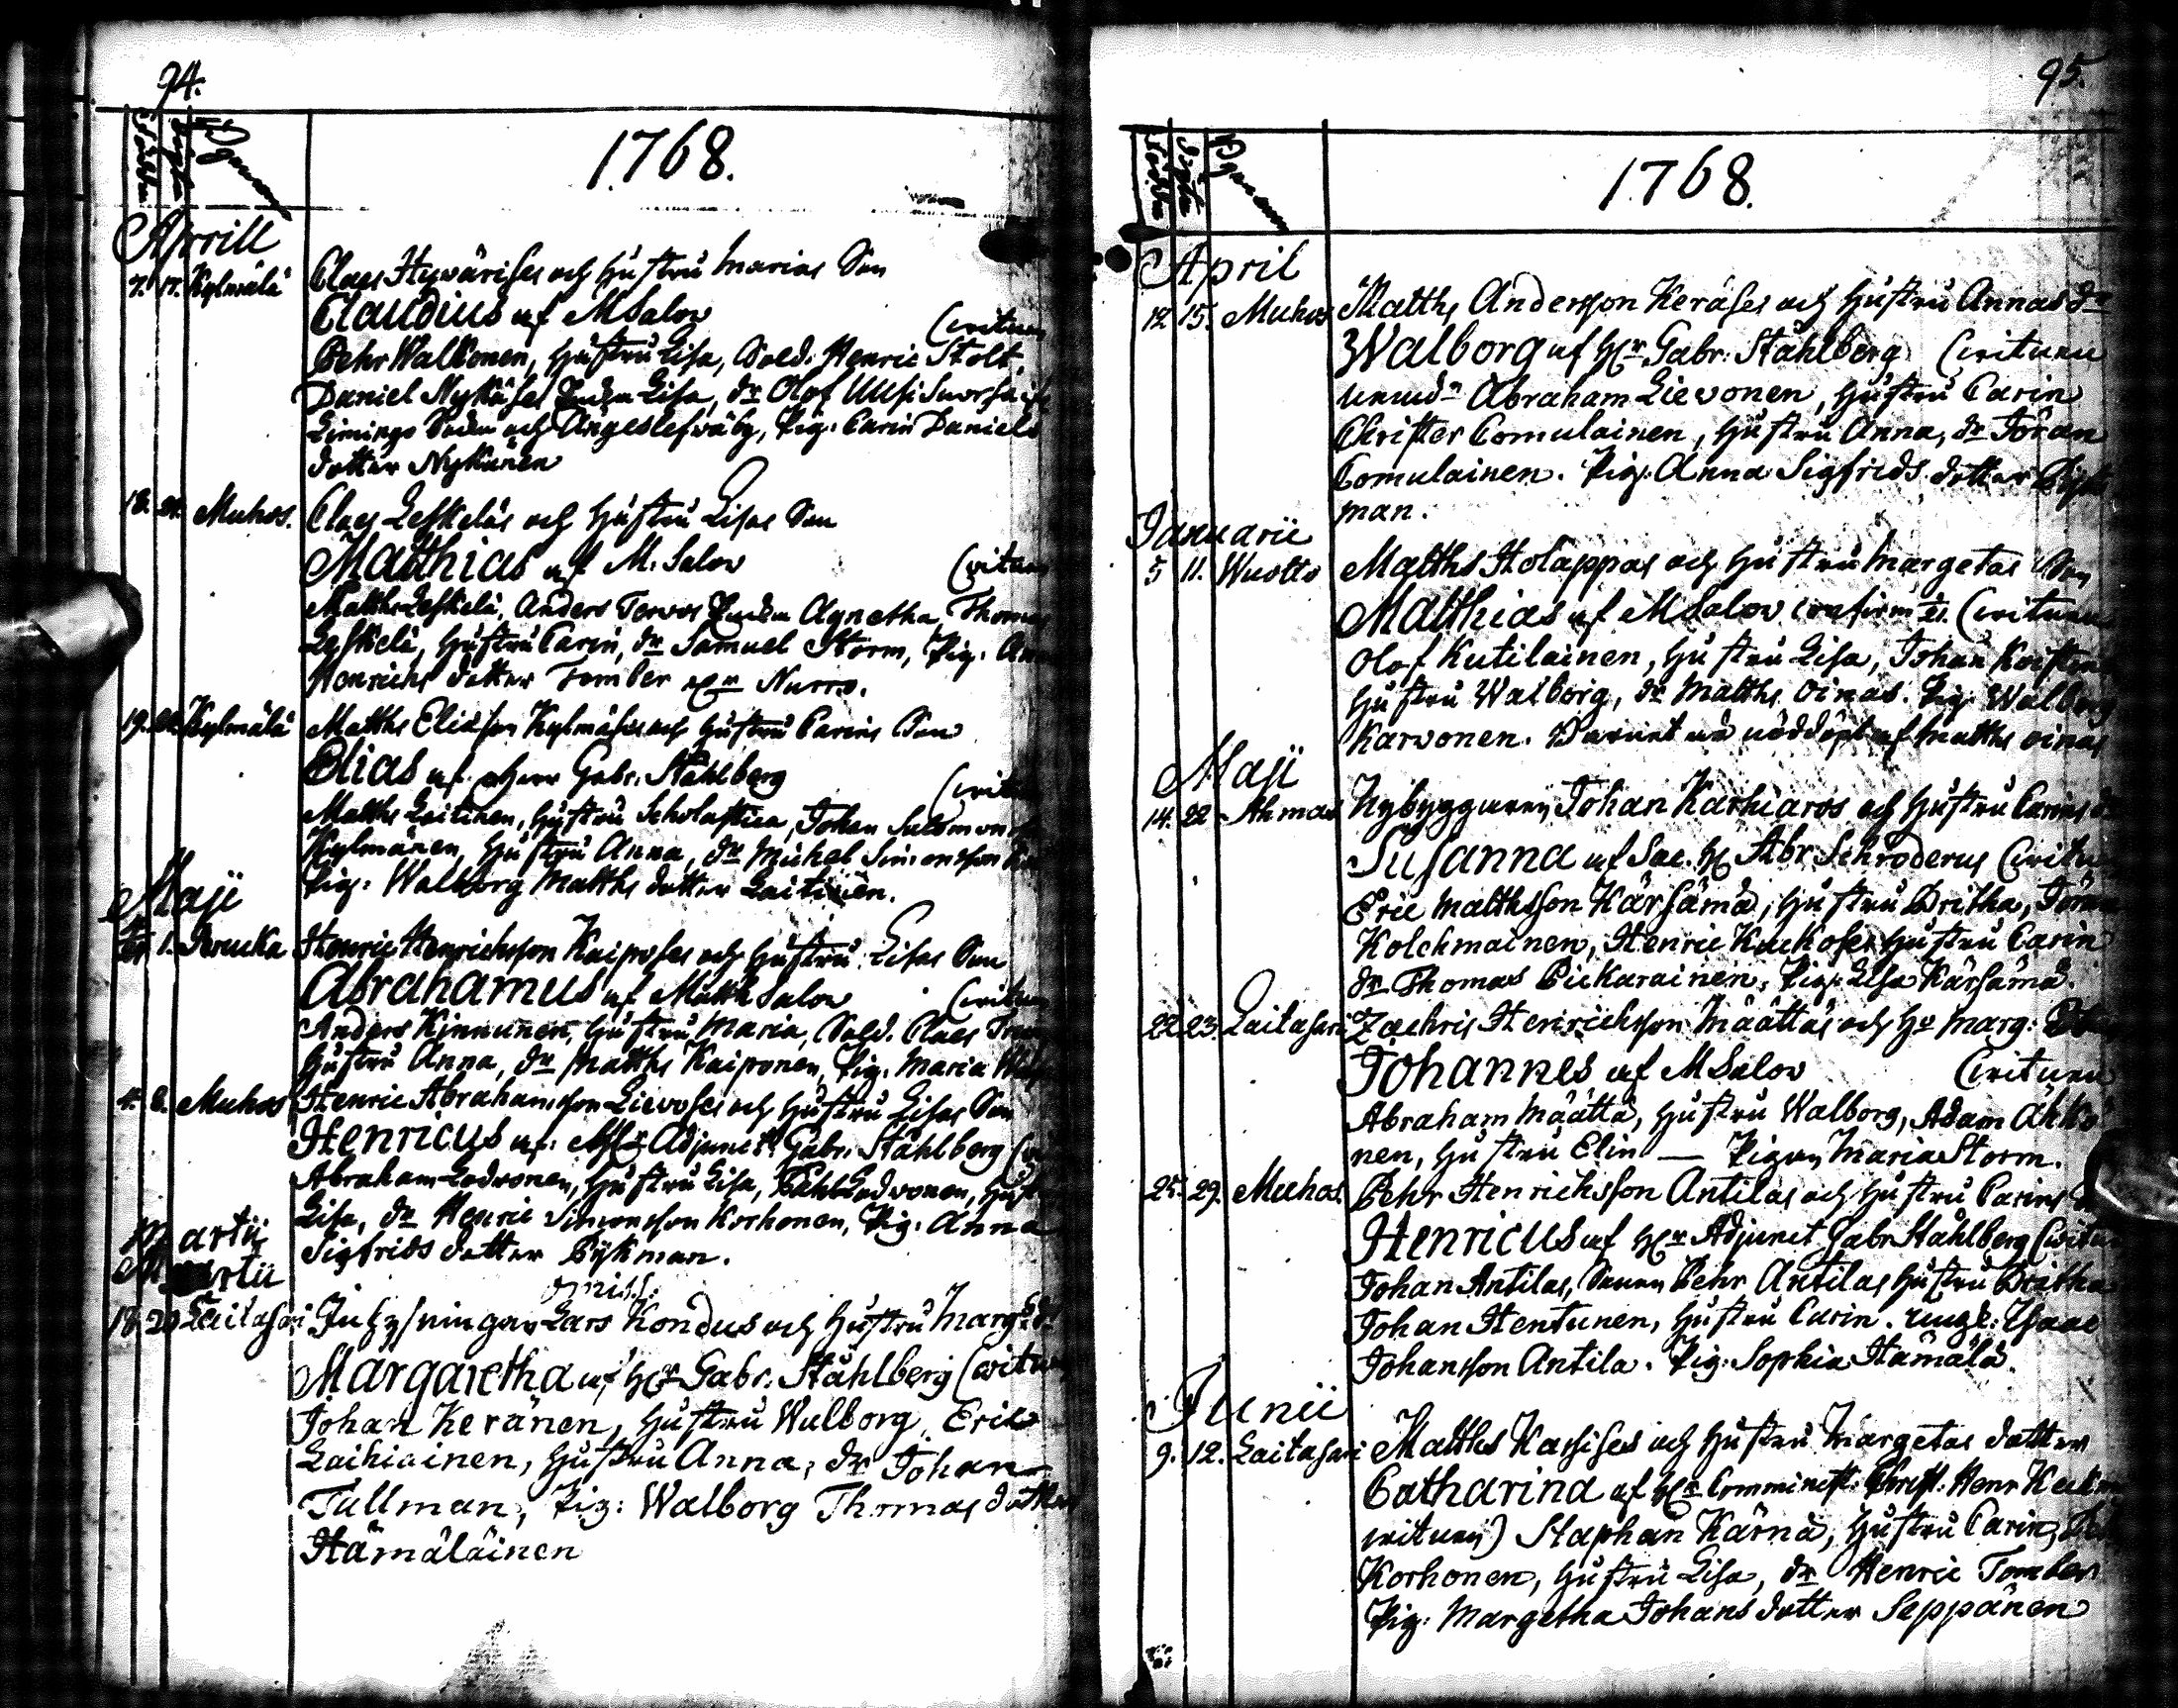 94.
Födde
Döpte
Byarna
1768.
Aprill
7. 17. Kylmälä Claes Hyvärises och hustru Marias Son
Claudius af M Salov (vittnen
Pehr Walkonen, hustru Lisa, Sold. Henric Stolt,
Daniel Nykäses Enka Lisa, dr Olof Uusi
Limingo Sockn och Ångeslefwäby, Pig. Carin Daniels
dotter Nykänen
18. 24. Muhos. Claes Leskeläs och hustru Lisas Son
Matthias af M. Salov (vittnen
Matths Leskelä, Anders Tervos Enka Agnetha, Thomas
Leskelä, hustru Carin, dr Samuel Storm, Pig. Anna
Henrichs dotter Tomber Nurro.
19. 24. Kylmälä Matths Eliæson Kylmäses och hustru Carins Son
Elias af Herr Gabr. Ståhlberg (vittn
Matths Laitinen, hustru Scholastica, Johan Salomonsson
Kylmänen, hustru Anna, dr Michel Simonsson
Pig: Walborg Matths dotter Laitinen.
Maji
1. Henric Henrichsson Kaiposes och hustru Lisas Son
Abrahamus af Matth Salov (vittnen
Anders Kinnunen, hustru Maria, Sold. Claes
hustru Anna, dr Matths Kaiponen, Pig. Maria
4. 8. Muhos Henric Abrahamsson Lievoses och hustru Lisas Son
Henricus af Adjunct Gabr. Ståhlberg (
Abraham Lodvonen, hustru Lisa, Pehr Lodvonen, hustru
Lisa, dr Henric Simonsson Korhonen, Pig. Anna
Sigfrids dotter Bykman.
Martii
Martii
omiss:
18. 20 Laitasari Inhysningen Lars Kondus och hustru Marg: dr
Margaretha af Hr Gabr. Ståhlberg (vittnen
Johan Keränen, hustru Walborg, Eric
Laihiainen, hustru Anna, dr Johan
Tullman, Pig: Walborg Thomas dotter
Hämäläinen
95.
Födde
Döpte
Byarna
1768.
April
12 15. Muhos Matths Andersson Keräses och hustru Annas dr
Walborg af Hr Gabr: Ståhlberg (vittnen
Abraham Lievonen, hustru Carin
Christer Comulainen, hustru Anna, dr Jöran
Comulainen. Pig: Anna Sigfrids dotter Byk
man.
Januarii
5 11. Wuotto Matths Holappas och hustru Margetas Son
Matthias af M Salov confirm d 21. (vittnen
Olof Kutilainen, hustru Lisa, Johan
hustru Walborg, dr Matths Oinas. Pig Walborg
Karvonen. Barnet är nöddöpt af Matths Oinas
Maji
14. 22 Ahmas Nybyggaren Johan Karhiaros och hustru Carins dr
Susanna af Sac. H Abr. Schroderus (vittnen
Eric Matthsson Kärsämä, hustru Britha, Jöran
Kolehmainen, Henric Kuckoses hustru Carin
dr Thomas Pickarainen, Pig: Elsa Kärsämä.
22. 23. Laitasari Zachris Henrichsson Määttäs och ho Marg: Son
Johannes af M Salov (vittnen
Abraham Määttä, hustru Walborg, Adam Ähkö
nen, hustru Elin — Pigan Maria Storm.
25. 29. Muhos. Pehr Henrichsson Antilas och hustru Carins
Henricus af Hr Adjunct Gabr Ståhlberg (vittnen
Johan Antilas, Sonen Pehr Antilas hustru Britha
Johan Hentunen, hustru Carin. ungk: Isaac
Johansson Antila. Pig: Sophia Hämälä.
Junii
9. 12. Laitasari Matths Karhises och hustru Margetas dotter
Catharina af Hr Comminist: Christ: Henr Keckm
vittnen) Staphan Kärnä, hustru Carin,
Korhonen, hustru Lisa, dr Henric Tomber
Pig: Margetha Johans dotter Seppänen